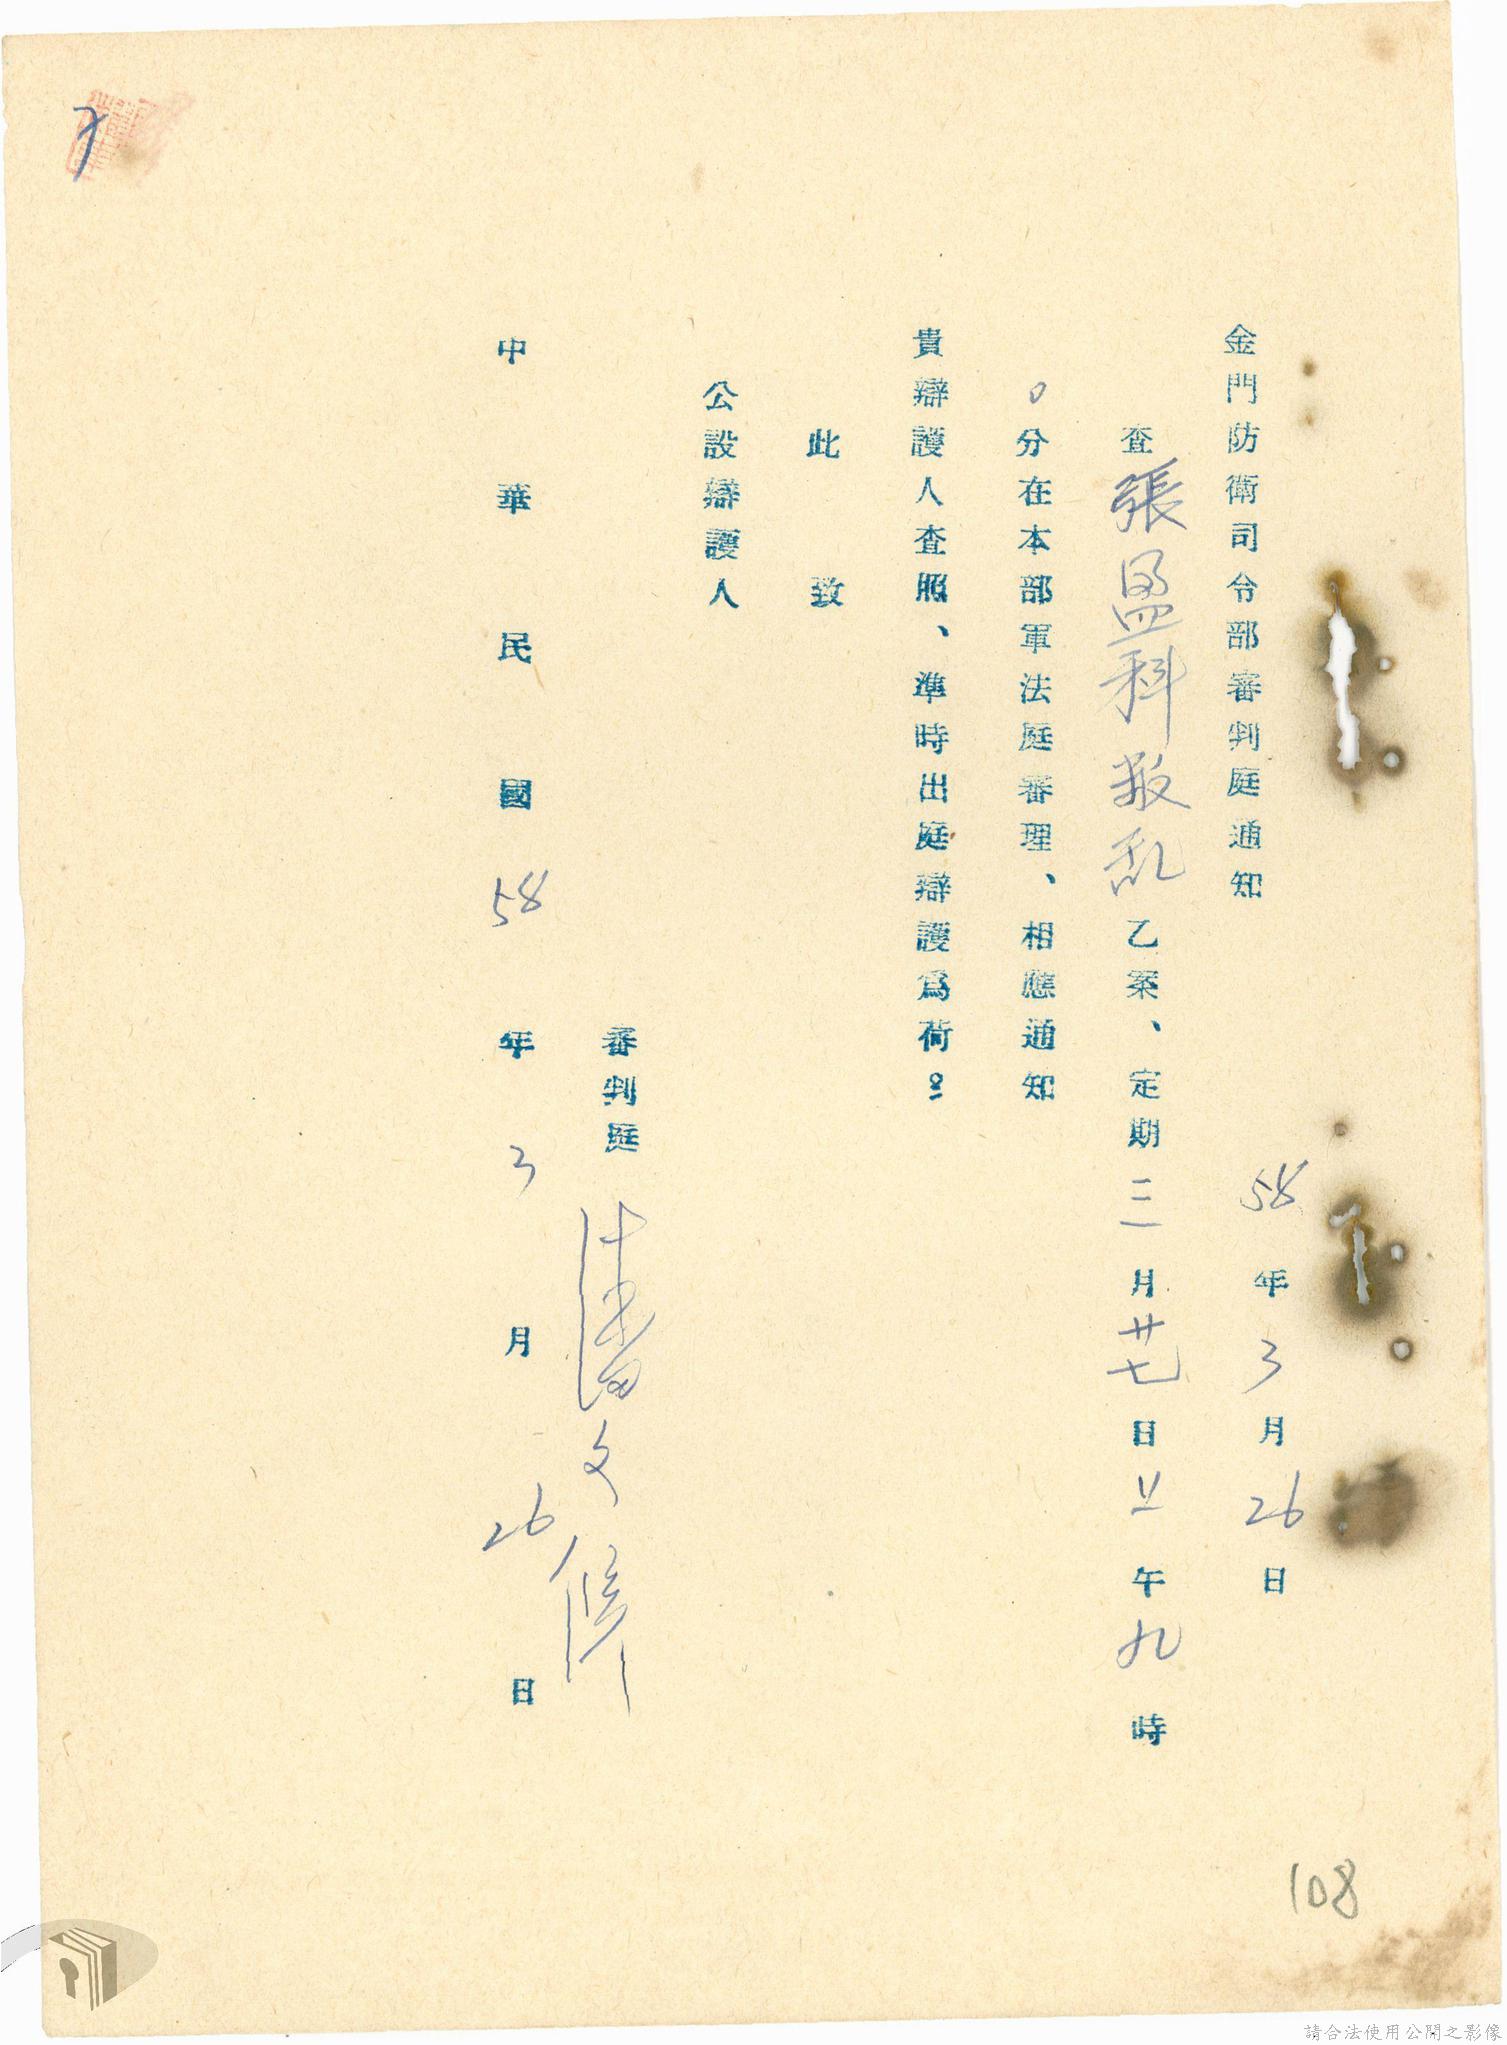 金門防衛司令部審判庭通知
58年3月26日
查張盈科叛乱乙案、定期三月廿七日上午九時
0分在本部軍法庭審理、相應通知
貴辯護人查照、準時出庭辯護為荷
此致
公設辯護人
審判庭潘文偉
中華民國58年3月26日
108
請合法使用公開之影像